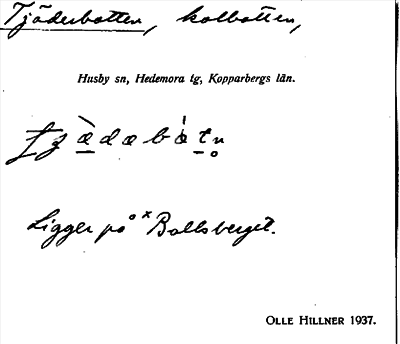 Tjäderbotten, kolbotten,
Husby sn, Hedemora tg, Kopparbergs län.
Ligger på × Bollsberget.
OLLE HILLNER 1937.